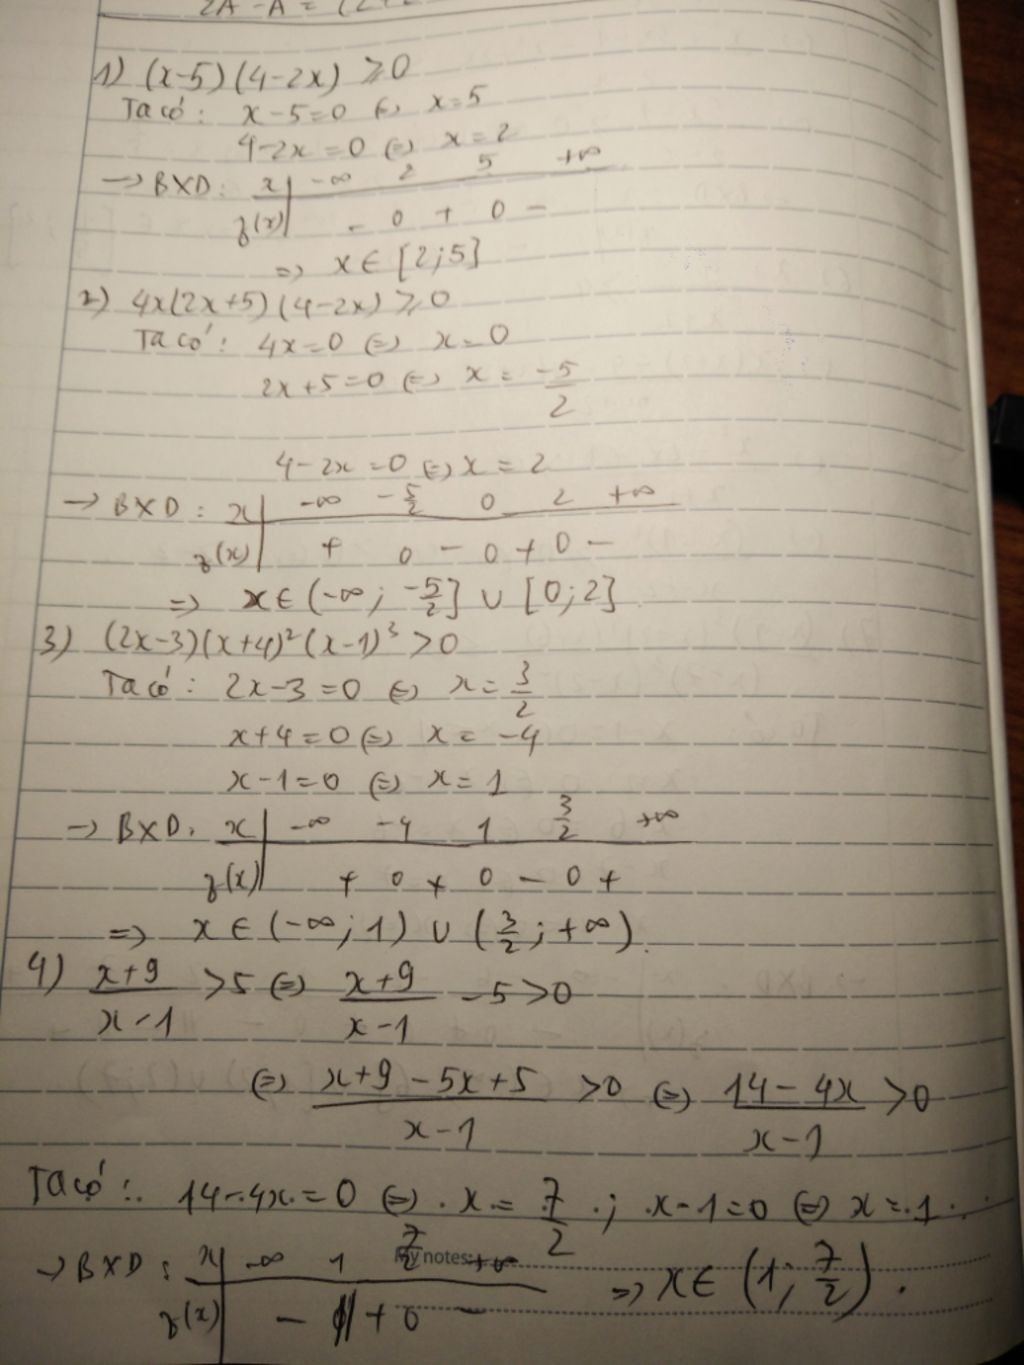 2A - A = (2+2
1) (x-5)(4-2x) ≥ 0
Ta có: x-5=0 ⇔ x=5
4-2x=0 ⇔ x=2
→ BXD: x | -∞ 2 5 +∞
f(x) | - 0 + 0 -
⇒ x ∈ [2;5]
2) 4x(2x+5)(4-2x) ≥ 0
Ta có: 4x=0 ⇔ x=0
2x+5=0 ⇔ x = -5/2
4-2x=0 ⇔ x=2
→ BXD: x | -∞ -5/2 0 2 +∞
f(x) | + 0 - 0 + 0 -
⇒ x ∈ (-∞; -5/2] ∪ [0;2]
3) (2x-3)(x+4)²(x-1)³ > 0
Ta có: 2x-3=0 ⇔ x = 3/2
x+4=0 ⇔ x = -4
x-1=0 ⇔ x=1
→ BXD: x | -∞ -4 1 3/2 +∞
f(x) | + 0 + 0 - 0 +
⇒ x ∈ (-∞;1) ∪ (3/2; +∞).
4) x+9/x-1 > 5 ⇔ x+9/x-1 - 5 > 0
⇔ x+9-5x+5/x-1 > 0 ⇔ 14-4x/x-1 > 0
Ta có: 14-4x=0 ⇔ x = 7/2; x-1=0 ⇔ x=1.
My notes:
→ BXD: x | -∞ 1 7/2 +∞ ⇒ x ∈ (1; 7/2).
f(x) | - || + 0 -